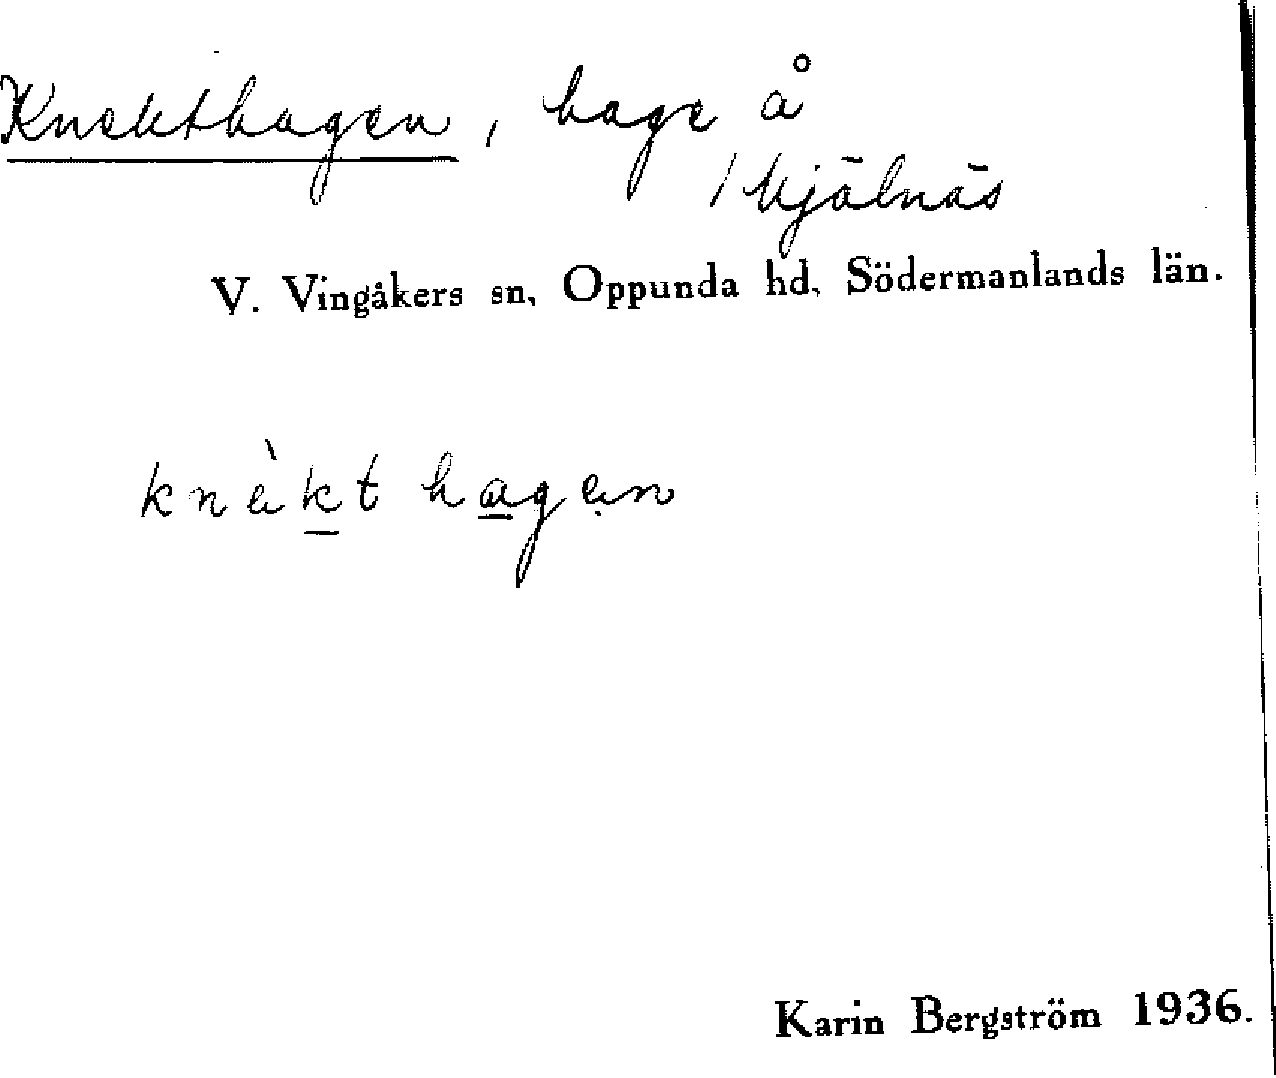 Knekthagen, hage å
/ Kjälnäs
V. Vingåkers sn, Oppunda hd, Södermanlands län.
knèkt hagen
Karin Bergström 1936.